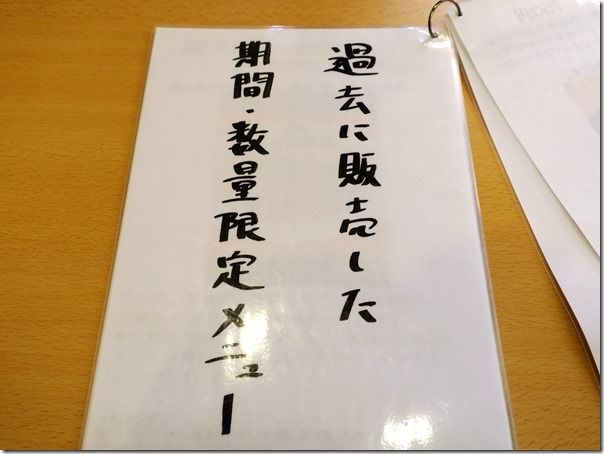 過去に販売した
期間・数量限定メニュー